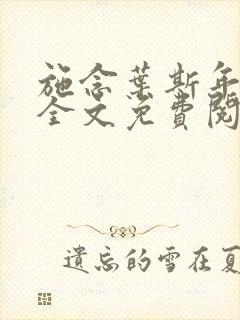 施念葉斯年
全文免費閱
遺忘的雪在夏